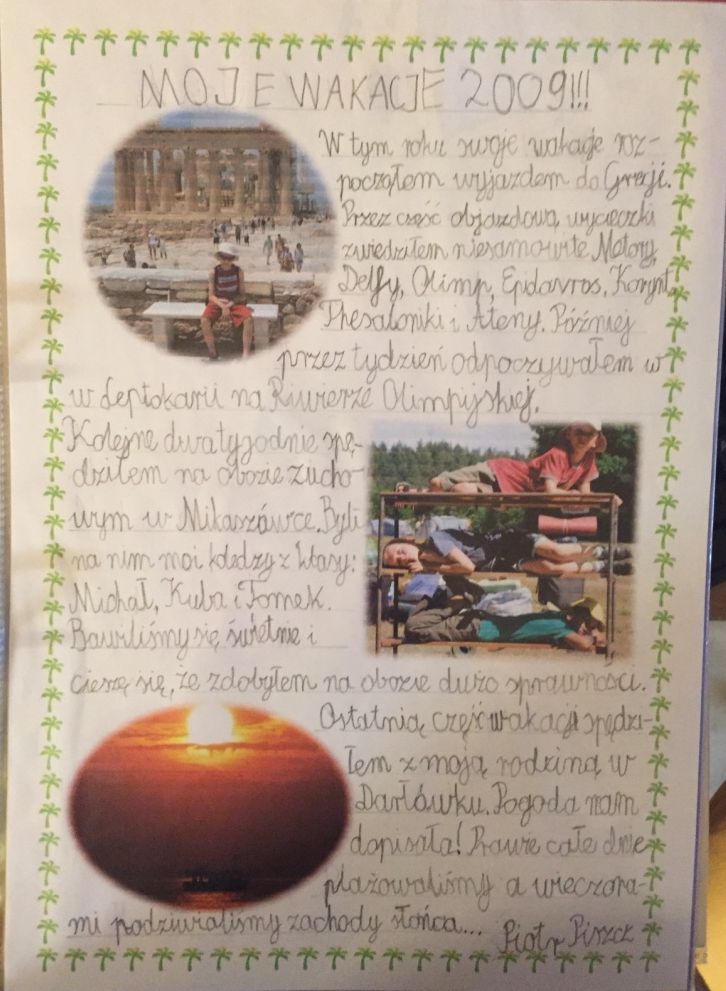 MOJE WAKACJE 2009!!!
W tym roku swoje wakacje roz-
począłem wyjazdem do Grecji.
Przez część objazdową wycieczki
zwiedziłem niesamowite Meteory,
Delfy, Olimp, Epidavros, Korynt,
Thesaloniki i Ateny. Później
przez tydzień odpoczywałem w
w Leptokarii na Riwierze Olimpijskiej.
Kolejne dwa tygodnie spę-
dziłem na obozie zucho-
wym w Mikaszówce. Byli
na nim moi koledzy z klasy:
Michał, Kuba i Tomek.
Bawiliśmy się świetnie i
cieszę się, że zdobyłem na obozie dużo sprawności.
Ostatnią część wakacji spędzi-
łem z moją rodziną w
Darłówku. Pogoda nam
dopisała! Prawie całe dnie
plażowaliśmy a wieczora-
mi podziwialiśmy zachody słońca...
Piotr Piszcz